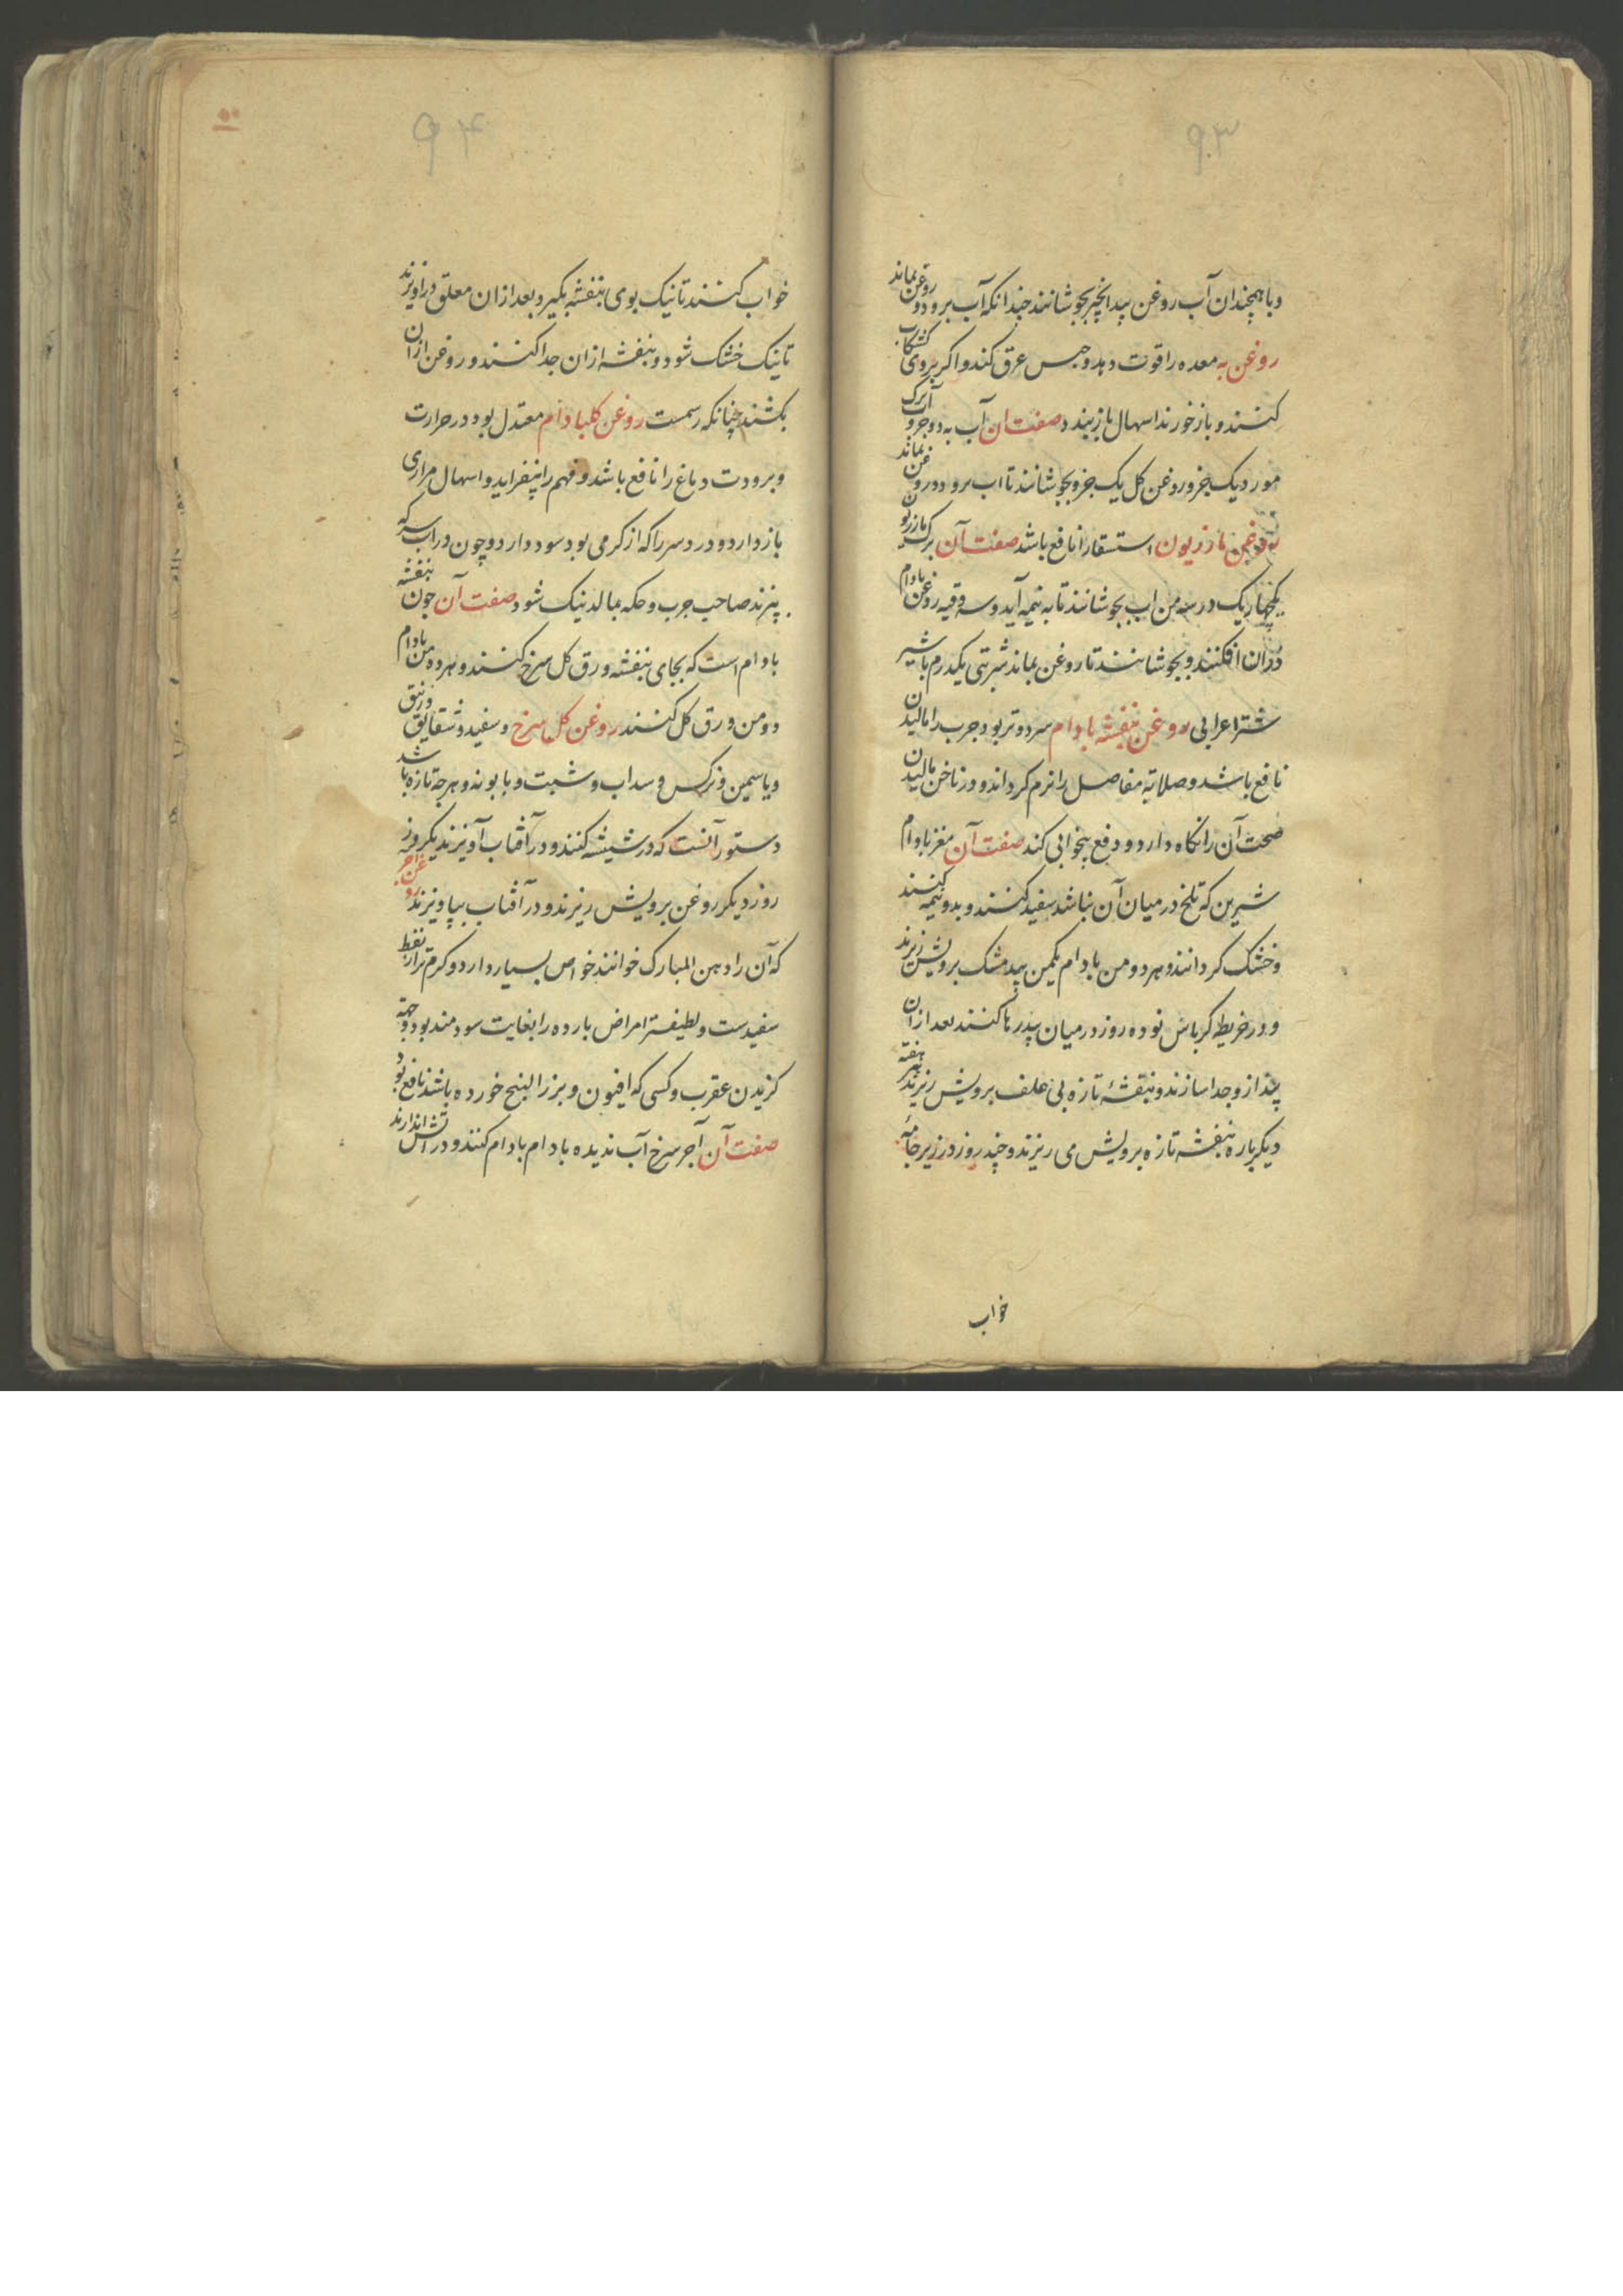 ۹۳
و با همچندان آب روغن بیدانجیر بجوشانند چندانکه آب برود و روغن بماند
روغن به معده را قوت دهد و حبس عرق کند و اکر بروی کشکاب
کنند و باز خورند اسهال باز بندد صفت ان آب به دو جزو آب برک
مورد یک جزو روغن کل یک جزو بجوشانند تا اب برود و روغن بماند
روغن مازریون استسقا را نافع باشد صفت آن برک مازریون
یکچهاریک در سه من اب بجوشانند تا به نیمه آید و سه وقیه روغن بادام
دران افکنند و بجوشانند تا روغن بماند شربتی یکدرم با شیر
شتر اعرابی روغن بنفشه بادام سرد و تر بود جرب را مالیدن
نافع باشد و صلابة مفاصل را نرم کرداند و در ناخن مالیدن
صحت آن را نکاه دارد و دفع بیخوابی کند صفت آن مغز بادام
شیرین که تلخ در میان آن نباشد سفید کنند و بدو نیمه کنند
و خشک کردانند و هر دو من بادام یکمن بیدمشک برویش ریزند
و در خریطه کرباس نو ده روز در میان بید رها کنند بعد از ان
بید ازو جدا سازند و بنفشهٔ تازه بی علف برویش ریزند هر هفته
دیکرباره بنفشه تازه برویش می ریزند و چند روز در زیر جامه
خواب
۹۴
خواب کنند تا نیک بوی بنفشه بگیرد بعد ازان معلق دراویزند
تا نیک خشک شود و بنفشه ازان جدا کنند و روغن ازان
بکشند چنانکه رسمست روغن کلبادام معتدل بود در حرارت
و برودت دماغ را نافع باشد و فهم را بیفزاید و اسهال مراری
باز دارد و درد سر را که از کرمی بود سود دارد و چون در اب سرکه
پزند صاحب جرب و حکه بمالد نیک شود صفت آن چون بنفشه
بادام است که بجای بنفشه ورق کل سرخ کنند و هر ده من بادام
دو من ورق کل کنند روغن کل سرخ و سفید و شقایق و زنبق
و یاسمین و نرکس و سداب و شبت و بابونه و هرچه تازه باشد
دستور آنست که در شیشه کنند و در آفتاب آویزند یکروز
روز دیکر روغن برویش ریزند و در آفتاب بیاویزند روغن اجر
که آن را دهن المبارک خوانند خواص بسیار دارد و کرم تر از نفط
سفیدست و لطیفتر امراض بارده را بغایت سودمند بود و جهة
کزیدن عقرب و کسی که افیون و بزر البنج خورده باشد نافع بود
صفت آن آجر سرخ آب ندیده بادام بادام کنند و در اتش اندازند